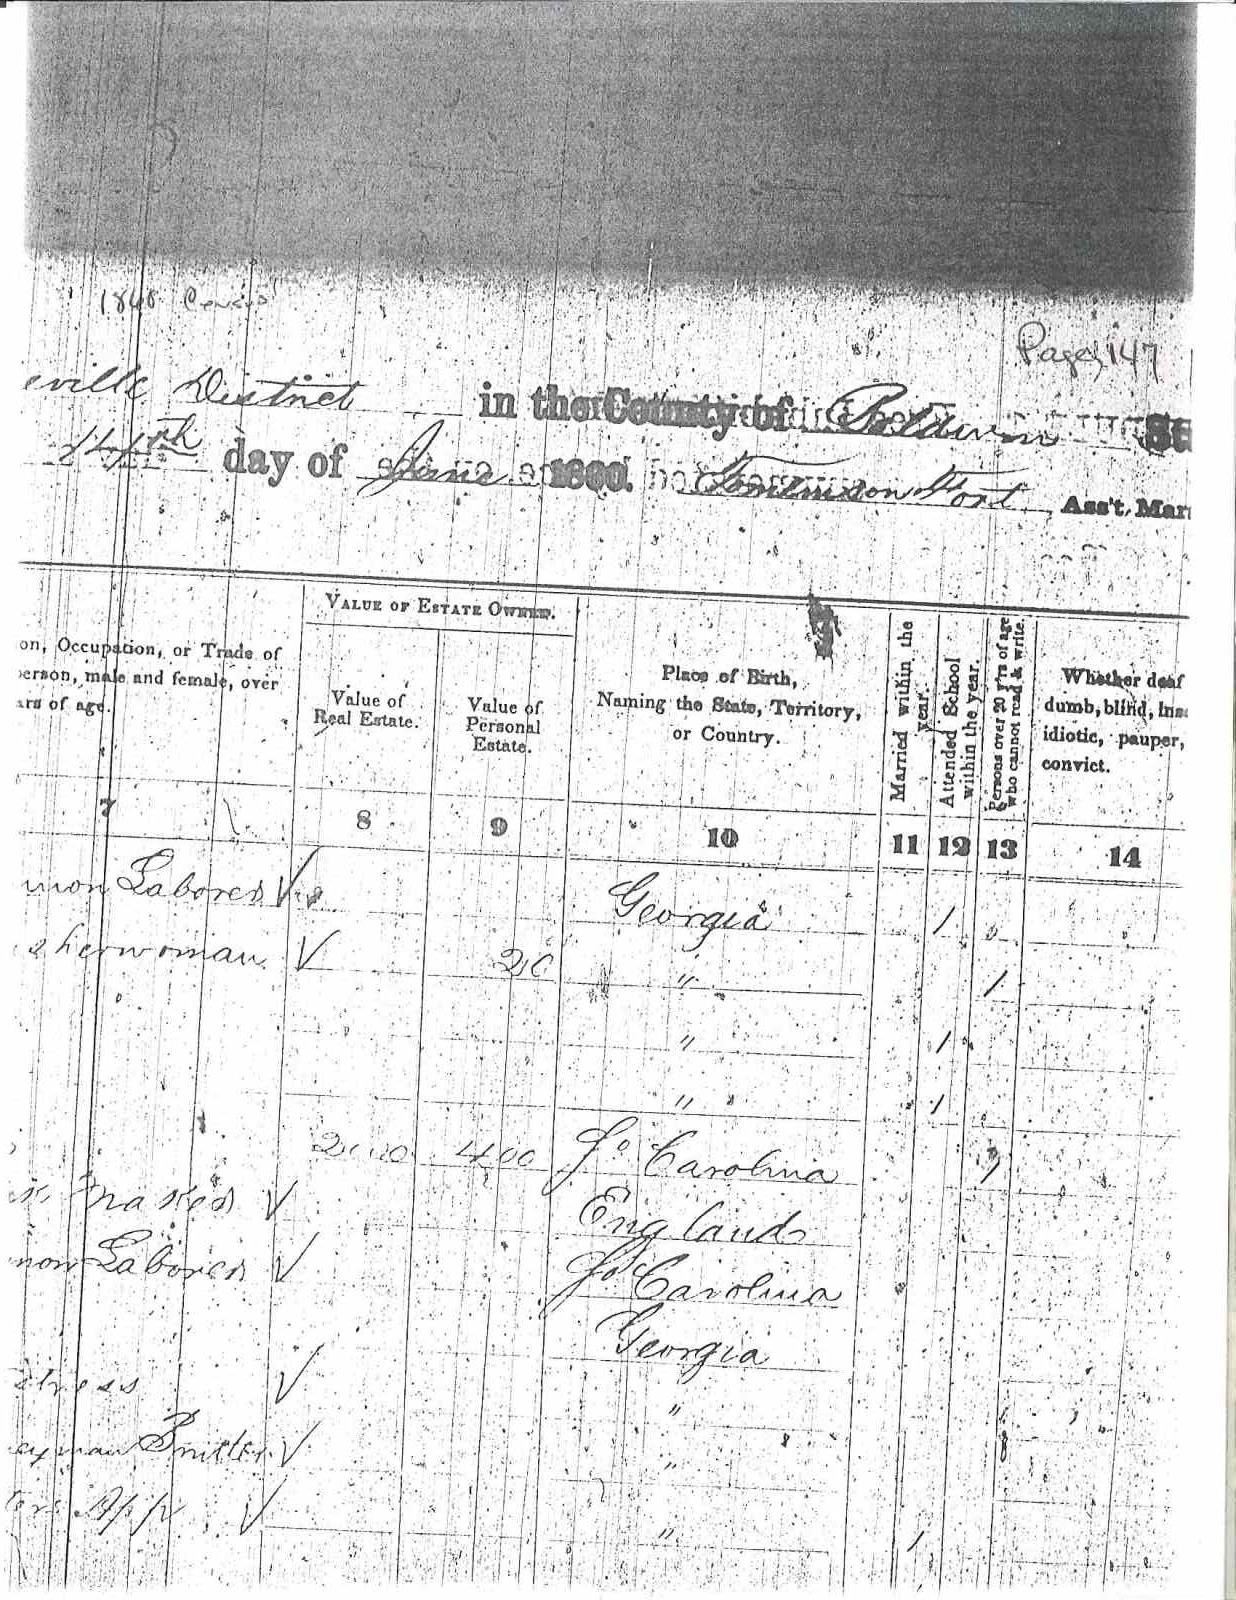 Census
Page, 147
eville District in the County of Baldwin St
day of June 1860. Tomlinson Fort Ass't, Mar
VALUE OF ESTATE OWNED.
on, Occupation, or Trade of
erson, male and female, over
ars of age.
Value of
Real Estate.
Value of
Personal
Estate.
Place of Birth,
Naming the State, Territory,
or Country.
Married within the
year.
Attended School
within the year.
Persons over 20 y'rs of age
who cannot read & write.
Whether deaf
dumb, blind, ins
idiotic, pauper,
convict.
7 8 9 10 11 12 13 14
mon Laborer √ Georgia /
sherwoman √ 20 " /
" /
" /
400 So Carolina /
Maker √ England
mon Laborer √ So Carolina
Georgia
tress √ "
eyman Printer √ "
App √ " /